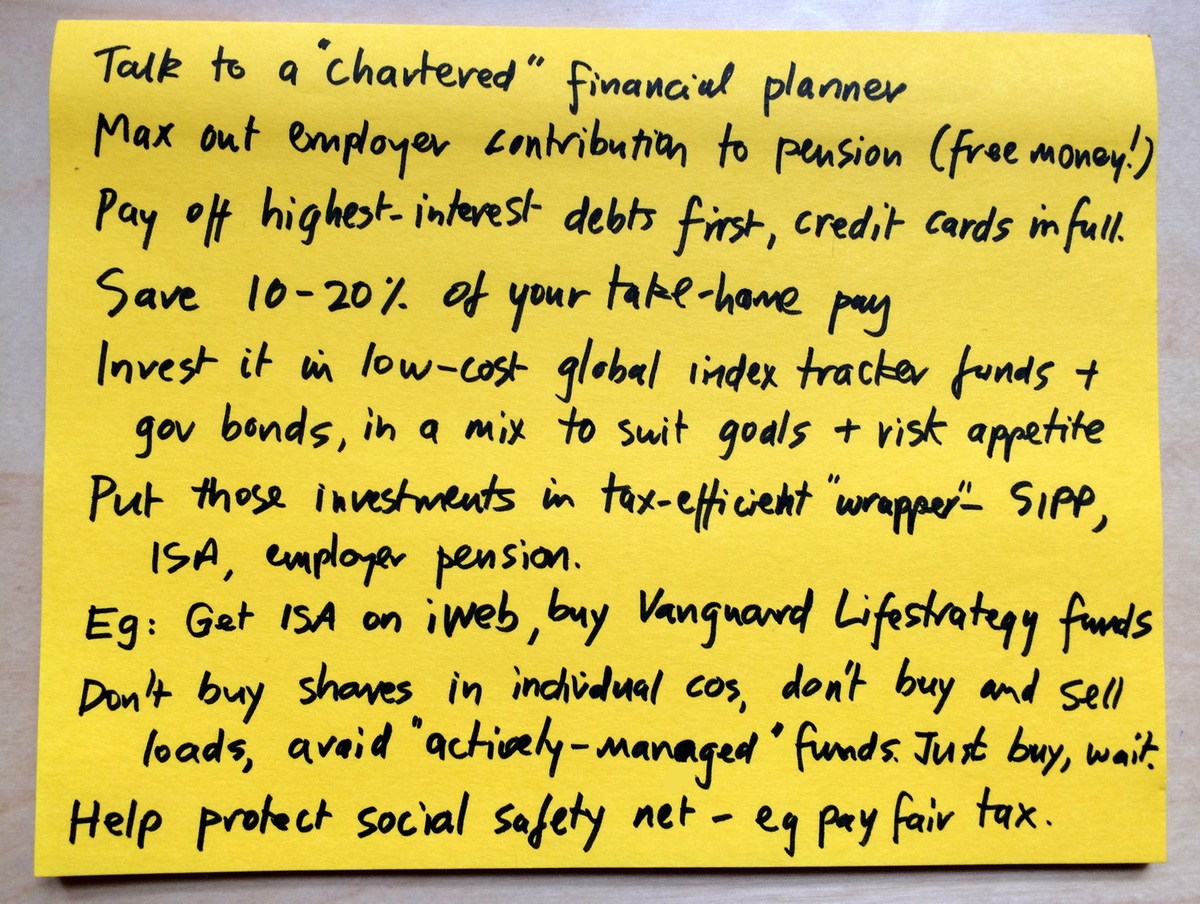 Talk to a "chartered" financial planner
Max out employer contribution to pension (free money!)
Pay off highest-interest debts first, credit cards in full.
Save 10-20% of your take-home pay
Invest it in low-cost global index tracker funds +
gov bonds, in a mix to suit goals + risk appetite
Put those investments in tax-efficient "wrapper" - SIPP,
ISA, employer pension.
Eg: Get ISA on iWeb, buy Vanguard Lifestrategy funds
Don't buy shares in individual cos, don't buy and sell
loads, avoid "actively-managed" funds. Just buy, wait.
Help protect social safety net - eg pay fair tax.